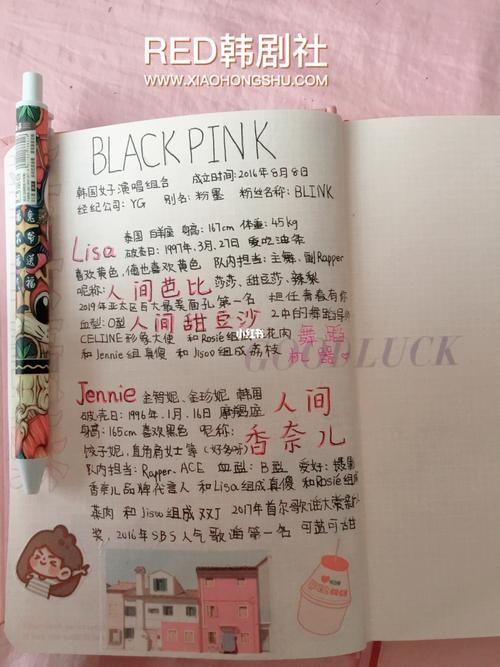 RED韩剧社
WWW.XIAOHONGSHU.COM
BLACKPINK
韩国女子演唱组合 成立时间:2016年8月8日
经纪公司:YG 别名:粉墨 粉丝名称:BLINK
Lisa 泰国 白羊座 身高:167cm 体重:45kg
破壳日:1997年.3月.27日 爱吃油条
喜欢黄色,俑也喜欢黄色 队内担当:主舞、副Rapper
昵称:人间芭比 莎莎、甜豆莎、辣梨
2019年亚太区百大最美面孔第一名 担任青春有你
血型:O型 人间甜豆沙 2中的舞蹈导师
CELINE形象大使 和Rosie组成花肉 舞蹈
和Jennie组真傻 和Jisoo组成荔枝 机器
小红书
GOODLUCK
Jennie 金智妮、金珍妮 韩国
破壳日:1996年.1月.16日 摩羯座 人间
身高:165cm 喜欢黑色 昵称: 香奈儿
饺子妮,直角肩女士等(好多哈)
队内担当:Rapper、ACE 血型:B型 爱好:摄影
香奈儿品牌代言人 和Lisa组成真傻 和Rosie组成
蒸肉 和Jisoo组成双J 2017年首尔歌谣大赏新人
奖,2016年SBS人气歌谣第一名 可盐可甜